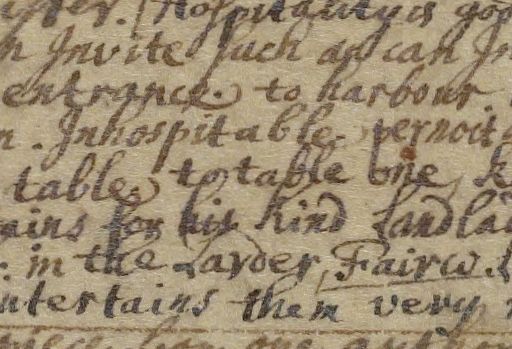 Hospitality is goo
h Invite such as can In
entrance. to harbour
n. Inhospitable. pernoct
table. to table one k
ains for his kind Landla
. in the Larder, Fairw.
ntertains them very